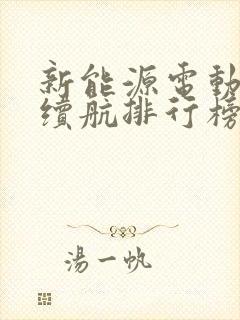 新能源電動
續航排行榜
湯一帆